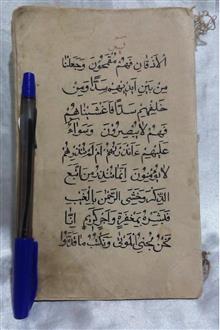 الاذقان فهم مقمحون وجعلنا
من بين ايديهم سدا ومن
خلفهم سدا فاغشيناهم
فهم لا يبصرون وسواء
عليهم ءانذرتهم ام لم تنذرهم
لا يؤمنون انما تنذر من اتبع
الذكر وخشي الرحمن بالغيب
فبشره بمغفرة واجر كريم انا
نحن نحيي الموتى ونكتب ما قدموا